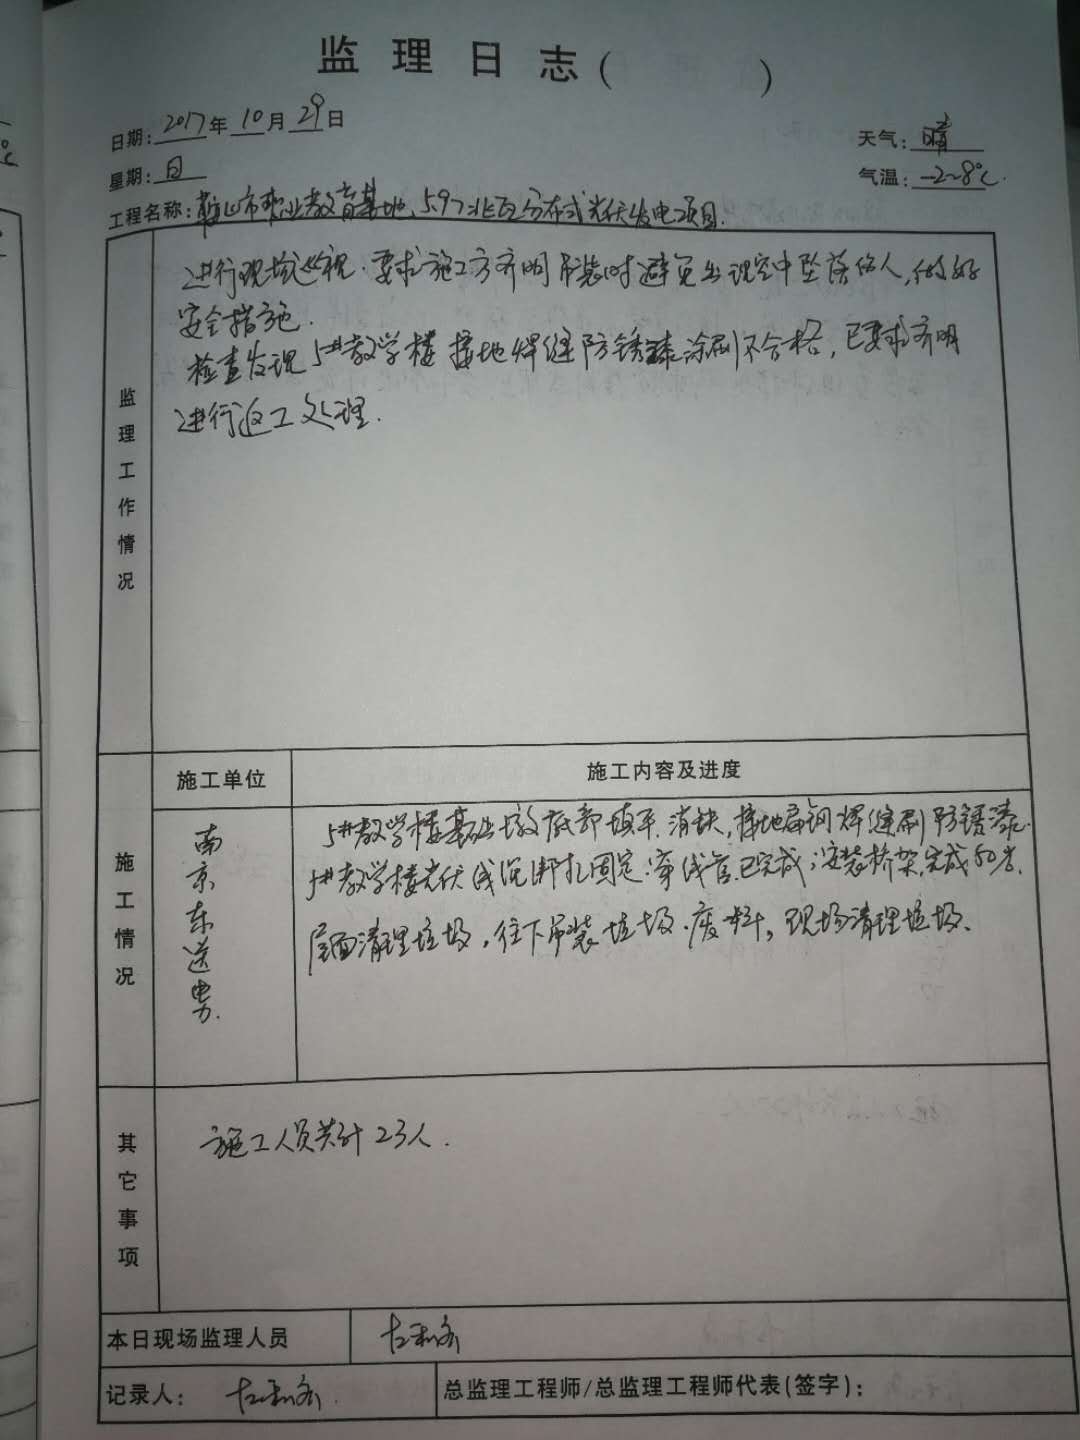 监理日志（ ）
日期：2017年10月29日
天气：晴
星期：日
气温：-2~8℃.
工程名称：鞍山市职业教育基地5.97兆瓦分布式光伏发电项目.
监理工作情况
进行现场巡视.要求施工方齐明吊装时避免出现空中坠落伤人，做好
安全措施.
检查发现5#教学楼接地焊缝防锈漆涂刷不合格，已要求齐明
进行返工处理.
施工单位
施工内容及进度
施工情况
南京东送电力.
5#教学楼基础墩底部填平.消缺,接地扁钢焊缝刷防锈漆.
5#教学楼光伏线绑扎固定.穿线管已完成;安装桥架,完成50米.
屋面清理垃圾,往下吊装垃圾.废料,现场清理垃圾、
其它事项
施工人员共计23人.
本日现场监理人员
记录人：
总监理工程师/总监理工程师代表(签字)：